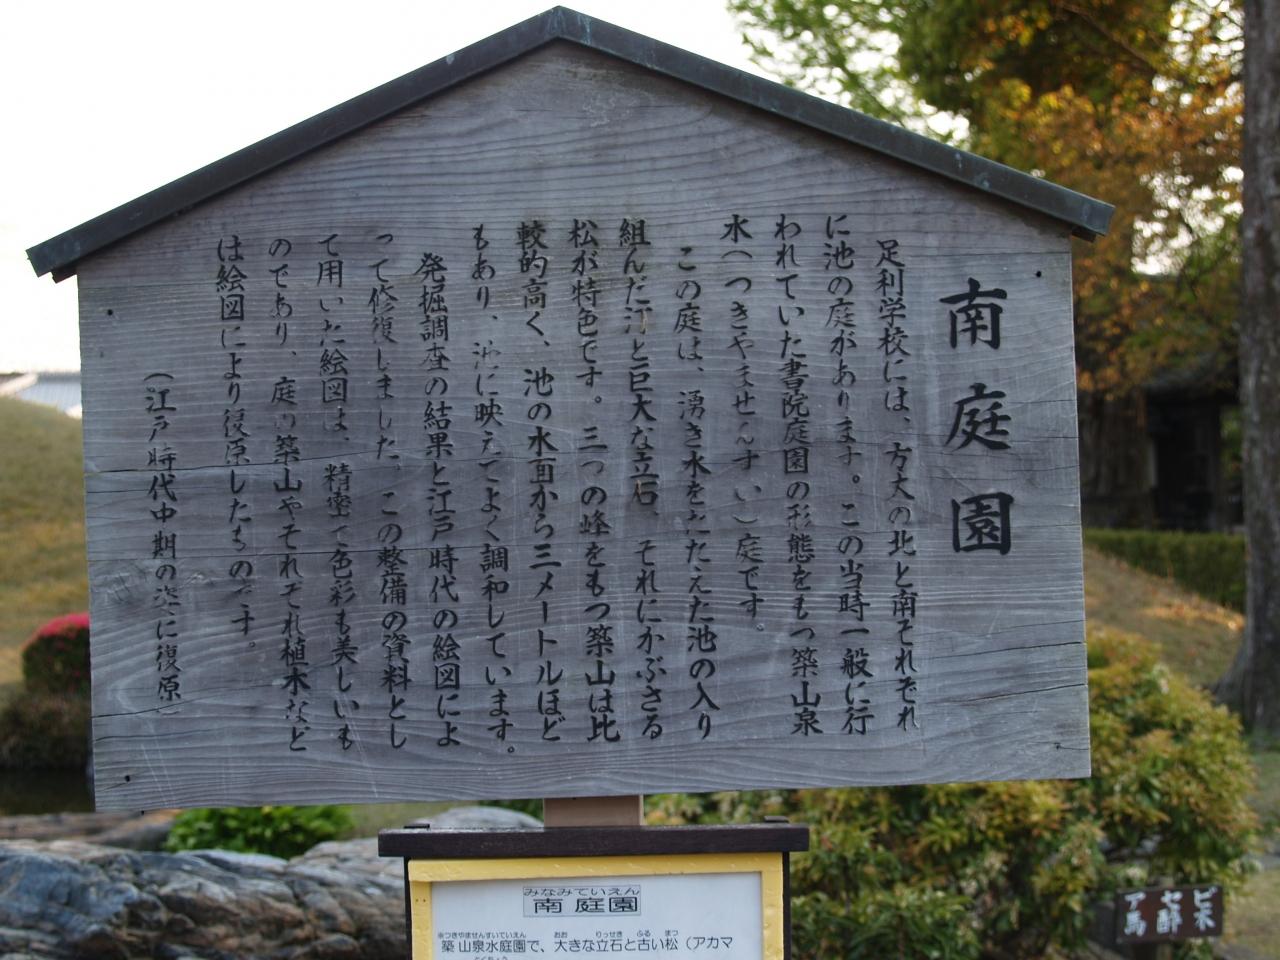 南庭園
足利学校には、方丈の北と南それぞれ
に池の庭があります。この当時一般に行
われていた書院庭園の形態をもつ築山泉
水(つきやませんすい)庭です。
この庭は、湧き水をたたえた池の入り
組んだ汀と巨大な立石、それにかぶさる
松が特色です。三つの峰をもつ築山は比
較的高く、池の水面から三メートルほど
もあり、池に映えてよく調和しています。
発掘調査の結果と江戸時代の絵図によ
って修復しました。この整備の資料とし
て用いた絵図は、精密で色彩も美しいも
のであり、庭の築山やそれぞれ植木など
は絵図により復原したものです。
(江戸時代中期の姿に復原)
みなみていえん
南庭園
※つきやませんすいていえん おお りっせき ふる まつ
築山泉水庭園で、大きな立石と古い松(アカマ
とくちょう
アセビ
馬酔木